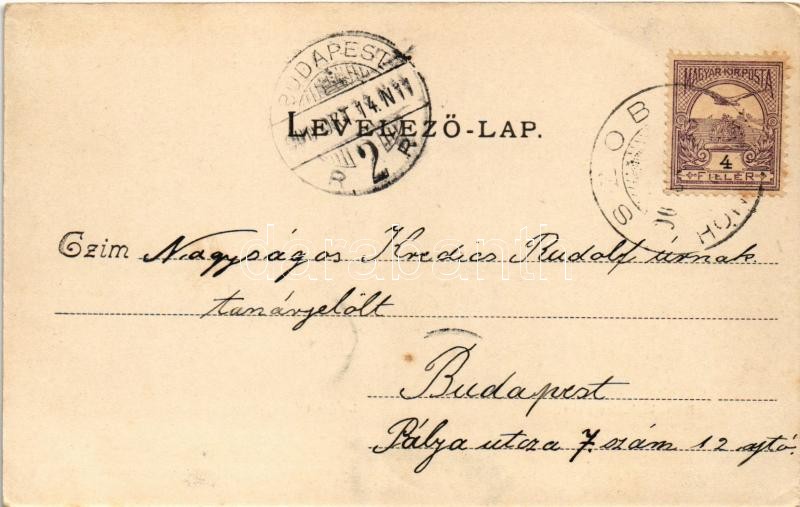 BUDAPEST
OKT 14. N11
R. 2 R
LEVELEZŐ-LAP.
MAGYAR KIR. POSTA
4
FILLÉR
SZOB
HON
Czim Nagyságos Kredics Rudolf úrnak
tanárjelölt
darabanth
Budapest
Pálya utcza 7. szám 12 ajtó.